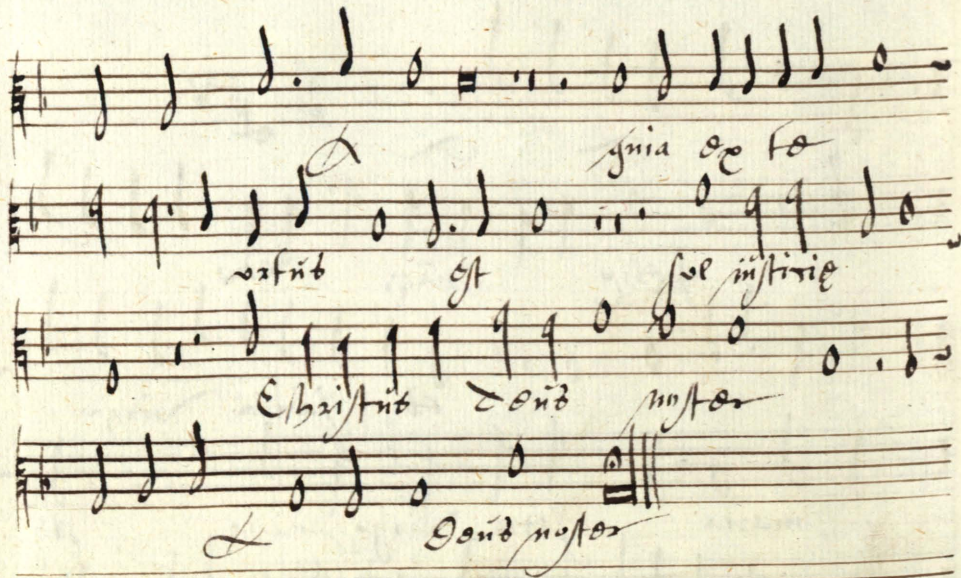 quia ex te
ortus est sol iusticie
Christus Deus noster
Deus noster